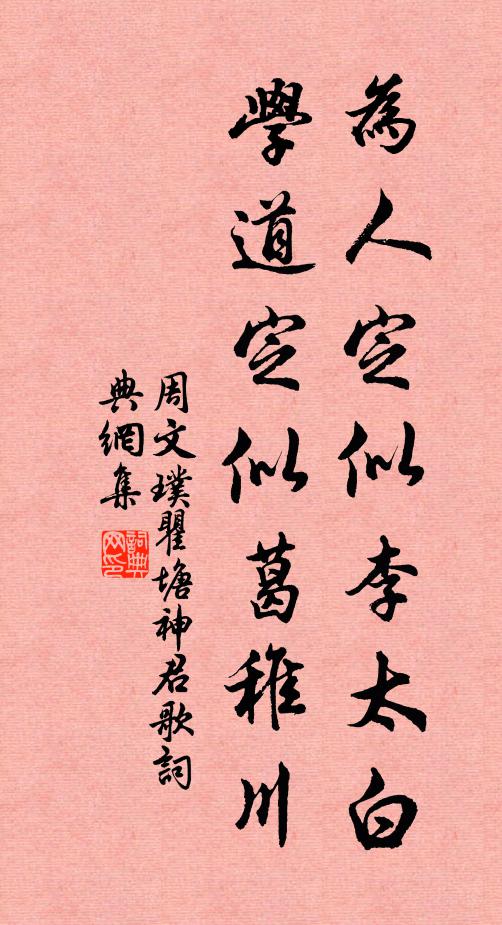 為人定似李太白
學道定似葛稚川
周文璞瞿塘神君歌詞
典網集
詞典网印